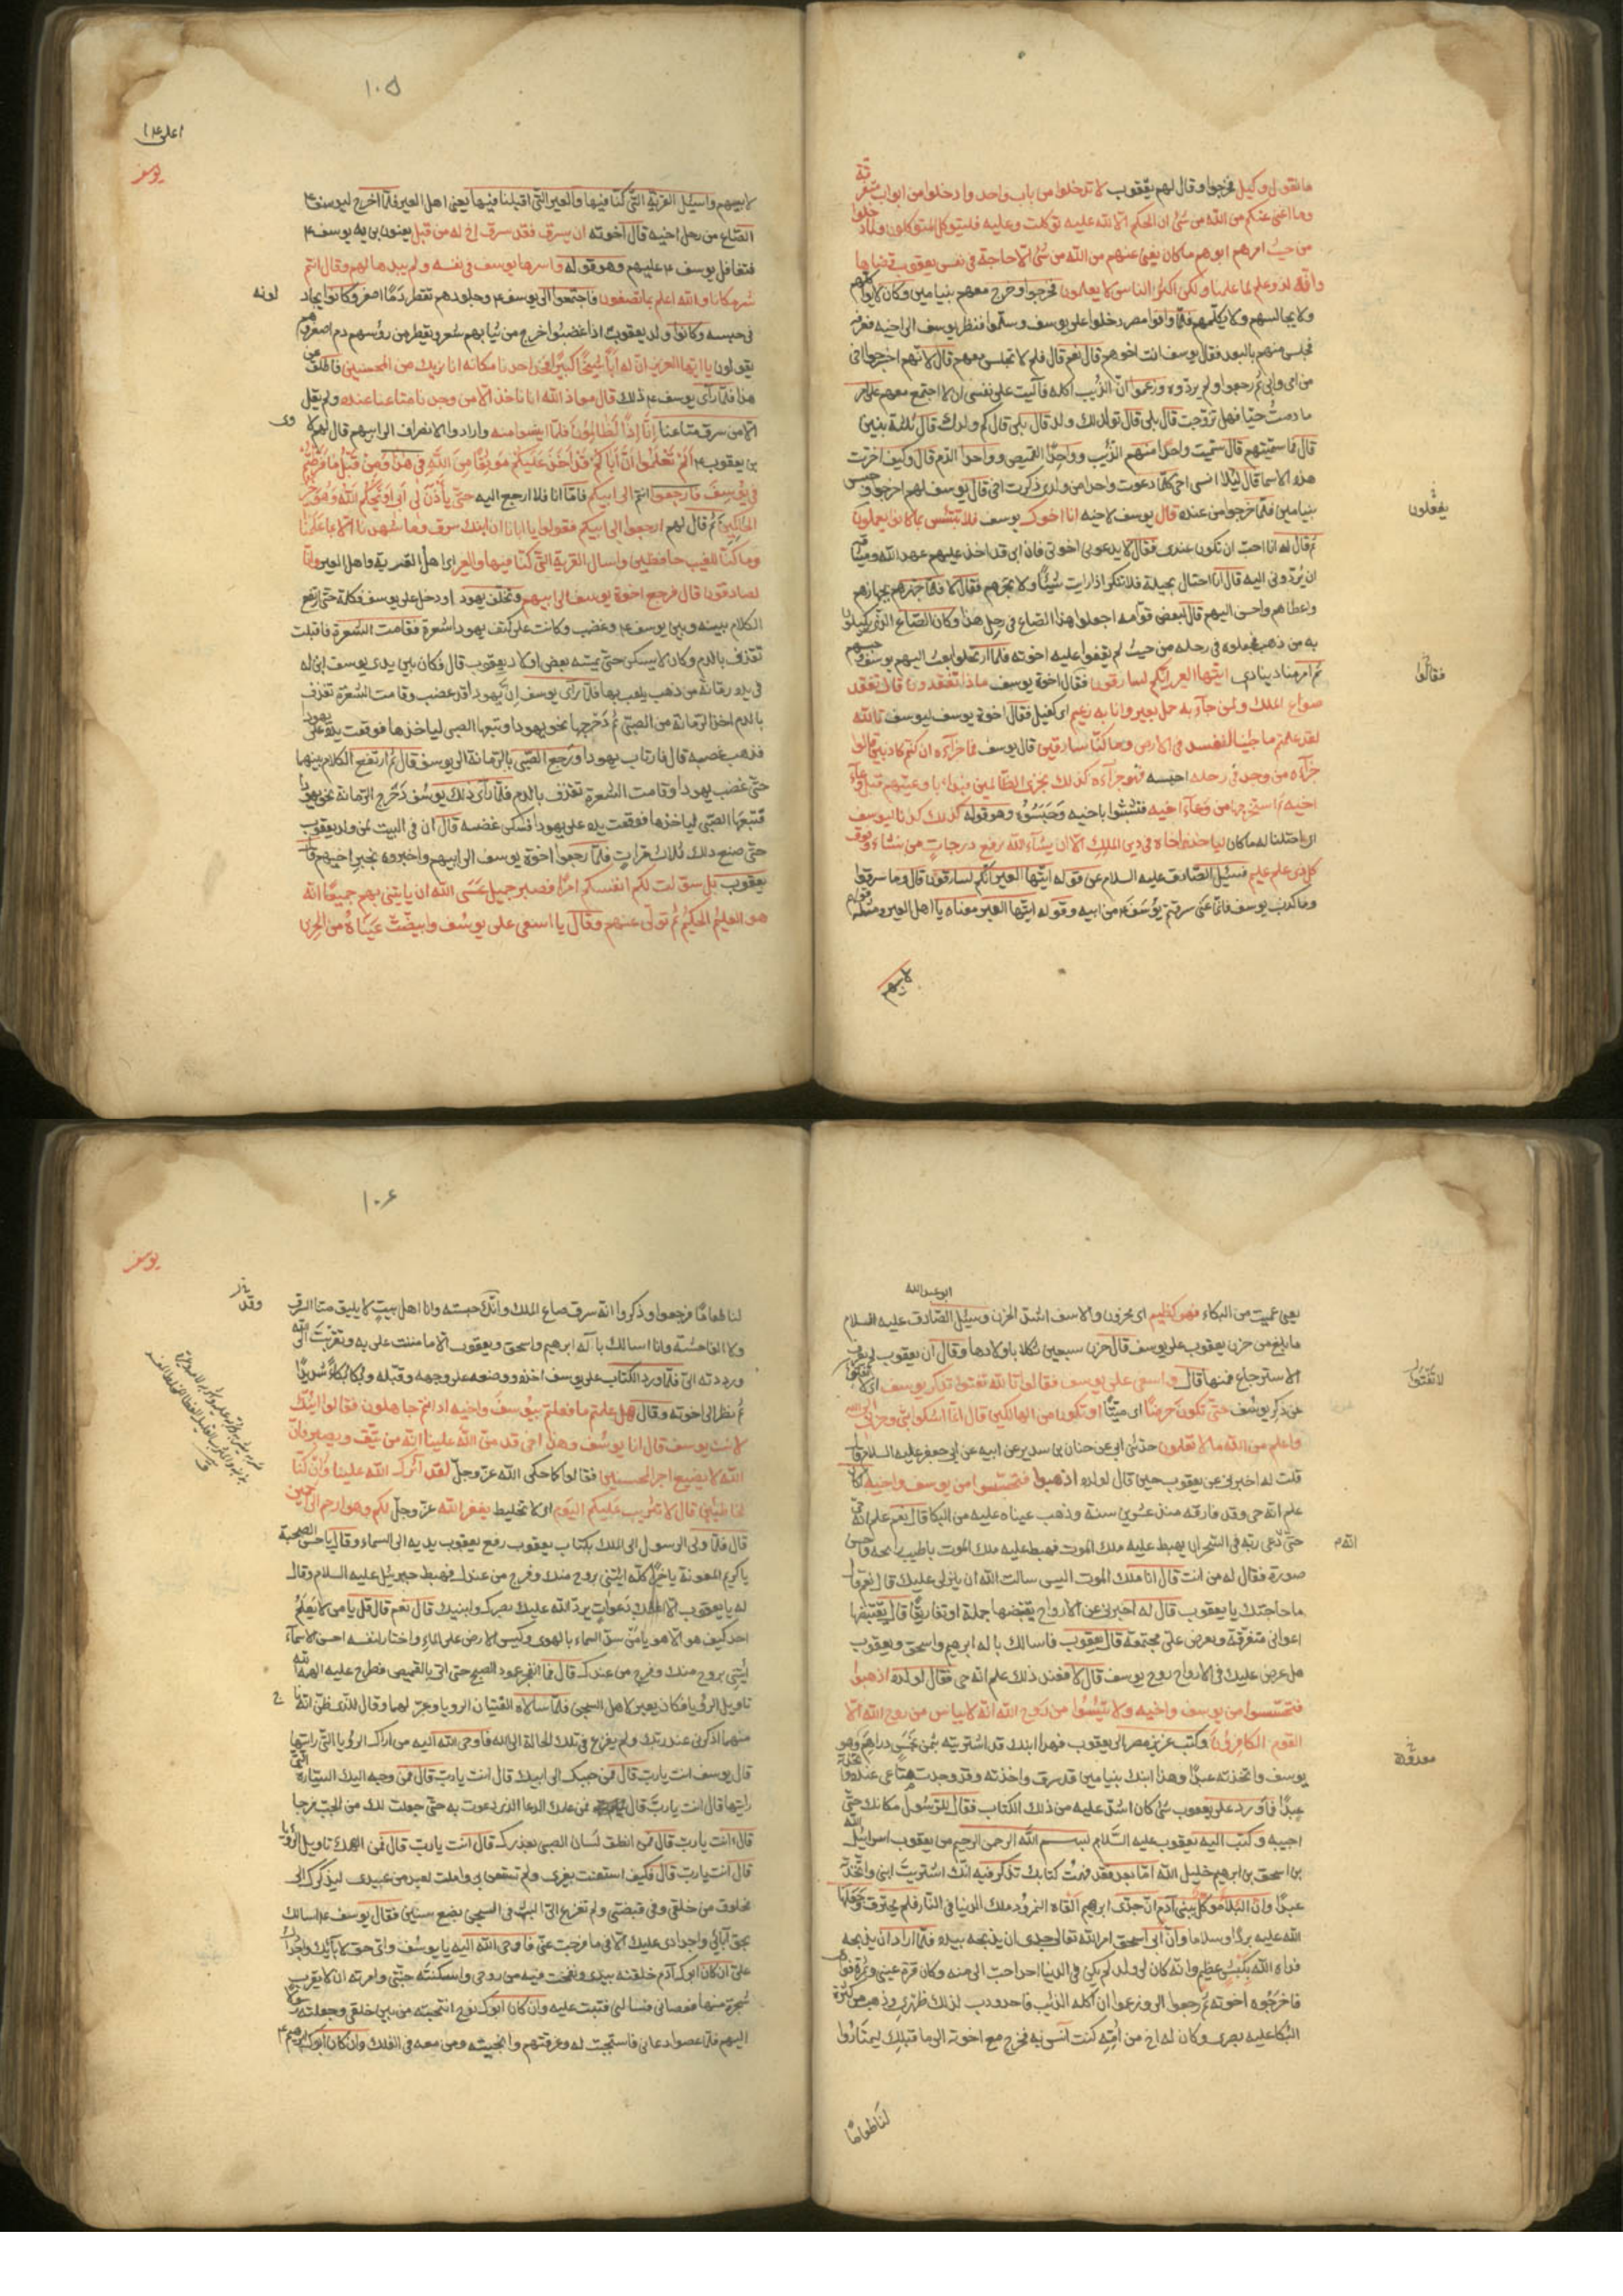 ما نقول وكيل فخرجوا وقال لهم يعقوب لا تدخلوا من باب واحد وادخلوا من ابواب متفرقة
وما اغنى عنكم من الله من شئ ان الحكم الا لله عليه توكلت وعليه فليتوكل المتوكلون ولما دخلوا
من حيث امرهم ابوهم ما كان يغنى عنهم من الله من شئ الا حاجة في نفس يعقوب قضيها
وانه لذو علم لما علمناه ولكن اكثر الناس لا يعلمون فخرجوا وخرج معهم بنيامين وكان لا يواكلهم
ولا يجالسهم ولا يكلمهم فلما وافوا مصر دخلوا على يوسف وسلموا فنظر يوسف الى اخيه فعرفه
فجلس منهم بالبعد فقال يوسف انت اخوهم قال نعم قال فلم لا تجلس معهم قال لانهم اخرجوا اخى
من امى وابى ثم رجعوا ولم يردوه وزعموا ان الذئب اكله فآليت على نفسى ان لا اجتمع معهم على امر
ما دمت حيا فهل تزوجت قال بلى قال فولد لك ولد قال بلى قال كم ولد لك قال ثلثة بنين
قال فما سميتهم قال سميت واحدا منهم الذئب وواحدا القميص وواحدا الدم قال وكيف اخترت
هذه الاسما قال لئلا انسى اخى كلما دعوت واحدا من ولدى ذكرت اخى قال يوسف لهم اخرجوا وحبس
بنيامين فلما خرجوا من عنده قال يوسف لاخيه انا اخوك يوسف فلا تبتئس بما كانوا يعملون
يفعلون
ثم قال له انا احب ان تكون عندى فقال لا يدعونى اخوتى فان ابى قد اخذ عليهم عهد الله وميثاقه
ان يردونى اليه قال انا احتال بحيلة فلا تنكر اذا رايت شيئا ولا تخبرهم فقال لا فلما جهزهم بجهازهم
واعطاهم واحسن اليهم قال لبعض قوامه اجعلوا هذا الصاع في رحل هذا وكان الصاع الذى يكيلون
به من ذهب فجعلوه فى رحله من حيث لم يقفوا عليه اخوته فلما ارتحلوا بعث اليهم يوسف وحبسهم
ثم امر مناديا ينادى ايتها العير انكم لسارقون فقال اخوة يوسف ماذا تفقدون قالوا نفقد
فقالوا
صواع الملك ولمن جآء به حمل بعير وانا به زعيم اى كفيل فقال اخوة يوسف ليوسف تالله
لقد علمتم ما جئنا لنفسد فى الارض وما كنا سارقين قال يوسف فما جزآءه ان كنتم كاذبين قالوا
جزآءه من وجد فى رحله احبسه فهو جزآءه كذلك نجزى الظالمين فبدا باوعيتهم قبل وعآء
اخيه ثم استخرجها من وعآء اخيه فتشبثوا باخيه وحبسوه وهو قوله كذلك كدنا ليوسف
اى احتلنا له ما كان لياخذ اخاه فى دين الملك الا ان يشآء الله نرفع درجات من نشاء وفوق
كل ذى علم عليم فسئل الصادق عليه السلام عن قوله ايتها العير انكم لسارقون قال وما سرقوا
وما كذب يوسف فانما عنى سرقتم يوسف من ابيه وقوله ايتها العير معناه يا اهل العير ومثله قولهم
لابيهم
١٠٥
يوسف
لابيهم واسئل القرية التى كنا فيها والعير التى اقبلنا فيها يعنى اهل العير فلما اخرج ليوسف
الصاع من رحل اخيه قال اخوته ان يسرق فقد سرق اخ له من قبل يعنون به يوسف
فتغافل يوسف عليهم وهو قوله فاسرها يوسف فى نفسه ولم يبدها لهم وقال انتم
شر مكانا والله اعلم بما تصفون فاجتمعوا الى يوسف وجلودهم تقطر دما اصفر وكانوا يجاد
لونه
فى حبسه وكانوا ولد يعقوب اذا غضبوا خرج من ثيابهم شعر ويقطر من رؤسهم دم اصفر وهم
يقولون يا ايها العزيز ان له ابا شيخا كبيرا فخذ احدنا مكانه انا نريك من المحسنين فاطلق عن
هذا فلما رأى يوسف ذلك قال معاذ الله ان ناخذ الا من وجدنا متاعنا عنده ولم يقل
الا من سرق متاعنا انا اذا لظالمون فلما ايسوا منه وارادوا الانصراف الى ابيهم قال لهم لاوى
بن يعقوب الم تعلموا ان اباكم قد اخذ عليكم موثقا من الله فى هذا ومن قبل ما فرطتم
فى يوسف فارجعوا انتم الى ابيكم فاما انا فلا ارجع اليه حتى يأذن لى ابى او يحكم الله وهو خير
الحاكمين ثم قال لهم ارجعوا الى ابيكم فقولوا يا ابانا ان ابنك سرق وما شهدنا الا بما علمنا
وما كنا للغيب حافظين واسال القرية التى كنا فيها والعير اى اهل القرية واهل العير وانا
لصادقون قال فرجع اخوة يوسف الى ابيهم وتخلف يهودا ودخل على يوسف فكلمه حتى ارتفع
الكلام بينه وبين يوسف وغضب وكانت على كتف يهودا شعرة فقامت الشعرة فاقبلت
تقذف بالدم وكان لا يسكن حتى يمسه بعض اولاد يعقوب قال فكان بين يدى يوسف ابن له
فى يده رمانة من ذهب يلعب بها فلما رأى يوسف ان يهودا قد غضب وقامت الشعرة تقذف
بالدم اخذ الرمانة من الصبى ثم دحرجها نحو يهودا وتبعها الصبى لياخذها فوقعت يده على يهودا
فذهب غضبه قال فارتاب يهودا ورجع الصبى بالرمانة الى يوسف قال ثم ارتفع الكلام بينهما
حتى غضب يهودا وقامت الشعرة تقذف بالدم فلما رأى ذلك يوسف دحرج الرمانة نحو يهودا
فتبعها الصبى لياخذها فوقعت يده على يهودا فسكن غضبه قال ان فى البيت لمن ولد يعقوب
حتى صنع ذلك ثلاث مرات فلما رجعوا اخوة يوسف الى ابيهم واخبروه بخبر اخيهم قال
يعقوب بل سولت لكم انفسكم امرا فصبر جميل عسى الله ان ياتينى بهم جميعا انه
هو العليم الحكيم ثم تولى عنهم وقال يا اسفى على يوسف وابيضت عيناه من الحزن
ابو عبد الله
يعنى عميت من البكاء فهو كظيم اى محزون والاسف اشد الحزن وسئل الصادق عليه السلام
ما بلغ من حزن يعقوب على يوسف قال حزن سبعين ثكلا باولادها وقال ان يعقوب لم يعرف
الاسترجاع فمنها قال وا اسفى على يوسف فقالوا تالله تفتؤا تذكر يوسف اى لا تفتؤا
لا تفتؤا
عن ذكر يوسف حتى تكون حرضا اى ميتا او تكون من الهالكين قال انما اشكوا بثى وحزنى الى الله
واعلم من الله ما لا تعلمون حدثنى ابى عن حنان بن سدير عن ابيه عن ابى جعفر عليه السلام قال
قلت له اخبرنى عن يعقوب حين قال لولده اذهبوا فتحسسوا من يوسف واخيه كان
علم انه حى وقد فارقه منذ عشرين سنة وذهب عيناه عليه من البكا قال نعم علم انه حى
حتى دعى ربه فى السحر ان يهبط عليه ملك الموت فهبط عليه ملك الموت باطيب رايحه واحسن
صورة فقال له من انت قال انا ملك الموت اليس سالت الله ان ينزلنى عليك قال نعم قال
ما حاجتك يا يعقوب قال له اخبرنى عن الارواح تقبضها جملة او تفاريقا قال يقبضها
اعوانى متفرقة ويعرض على مجتمعة قال يعقوب فاسالك باله ابرهيم واسحق ويعقوب
هل عرض عليك فى الارواح روح يوسف قال لا فعند ذلك علم انه حى فقال لولده اذهبوا
فتحسسوا من يوسف واخيه ولا تيئسوا من روح الله انه لا يياس من روح الله الا
القوم الكافرون وكتب عزيز مصر الى يعقوب فهذا ابنك قد اشتريته بثمن بخس دراهم وهو
معدودة
يوسف واتخذته عبدا وهذا ابنك بنيامين قد سرق واخذته وقد وجدت متاعى عنده واتخذته
عبدا فما ورد على يعقوب شئ كان اشد عليه من ذلك الكتاب فقال للرسول مكانك حتى
اجيبه وكتب اليه يعقوب عليه السلام بسم الله الرحمن الرحيم من يعقوب اسرائيل الله
بن اسحق بن ابرهيم خليل الله اما بعد فقد فهمت كتابك تذكر فيه انك اشتريت ابنى واتخذته
عبدا وان البلاء موكل ببنى آدم ان جدى ابرهيم القاه النمرود ملك الدنيا فى النار فلم يحترق وجعلها
الله عليه بردا وسلاما وان ابى اسحق امر الله تعالى جدى ان يذبحه بيده فلما اراد ان يذبحه
فداه الله بكبش عظيم وانه كان لى ولد لم يكن فى الدنيا احد احب الى منه وكان قرة عينى وثمرة فوادى
فاخرجوه اخوته ثم رجعوا الى وزعموا ان اكله الذئب فاحدودب لذلك ظهرى وذهب من كثرة
البكا عليه بصرى وكان له اخ من امه كنت آنس به فخرج مع اخوته الى ما قبلك ليمتاروا
لنا طعاما
١٠٦
يوسف
لنا طعاما فرجعوا وذكروا انه سرق صاع الملك وانك حبسته وانا اهل بيت لا يليق بنا السرق
ولا الفاحشة وانا اسالك باله ابرهيم واسحق ويعقوب الا ما مننت على به وتقربت الى الله
ورددته الى فلما ورد الكتاب على يوسف اخذه ووضعه على وجهه وقبله وبكا بكاء شديدا
ثم نظر الى اخوته وقال هل علمتم ما فعلتم بيوسف واخيه اذ انتم جاهلون فقالوا ائنك
لانت يوسف قال انا يوسف وهذا اخى قد من الله علينا انه من يتق ويصبر فان
الله لا يضيع اجر المحسنين فقالوا كما حكى الله عز وجل لقد آثرك الله علينا وان كنا
لخاطئين قال لا تثريب عليكم اليوم اى لا تخليط يغفر الله عز وجل لكم وهو ارحم الراحمين
قال فلما ولى الرسول الى الملك بكتاب يعقوب رفع يعقوب يديه الى السماء وقال يا حسن الصحبة
يا كريم المعونة يا خيرا كله ايتنى بروح منك وفرج من عندك فهبط جبرئيل عليه السلام وقال
له يا يعقوب الا اعلمك دعوات يرد الله عليك بصرك وابنيك قال نعم قال قل يا من لا يعلم
احد كيف هو الا هو يا من سد السماء بالهوى وكبس الارض على الماء واختار لنفسه احسن الاسمآء
ايتنى بروح منك وفرج من عندك قال فما انفجر عمود الصبح حتى اتى بالقميص فطرح عليه
تاويل الرؤيا فكان يعبر لاهل السجن فلما سالاه الفتيان الرويا وعبر لهما وقال للذى ظن انه ناج
منهما اذكرنى عند ربك ولم يفزع فى تلك الحالة الى الله فاوحى الله اليه من اراك الرؤيا التى رايتها
قال يوسف انت يا رب قال فمن حببك الى ابيك قال انت يا رب قال فمن وجه اليك السيارة التى
رايتها قال انت يا رب قال فمن علمك الدعا الذى دعوت به حتى جعلت لك من الجب فرجا
قال انت يا رب قال فمن انطق لسان الصبى بعذرك قال انت يا رب قال فمن الهمك تاويل الرؤيا
قال انت يا رب قال فكيف استعنت بغيرى ولم تستعن بى واملت لعبد من عبيدى ليذكرك الى
مخلوق من خلقى وفى قبضتى ولم تفزع الى البث فى السجن بضع سنين فقال يوسف اسالك
بحق آبائى واجدادى عليك الا فما فرجت عنى فاوحى الله اليه يا يوسف واى حق لآبائك واجدادك
على ان كان ابوك آدم خلقته بيدى ونفخت فيه من روحى واسكنته جنتى وامرته ان لا يقرب
شجرة منها فعصانى فسالنى فتبت عليه وان كان ابوك نوح انتجبته من بين خلقى وجعلته رسولا
اليهم فلما عصوا دعانى فاستجبت له وغرقتهم وانجيته ومن معه فى الفلك وان كان ابوك ابرهيم